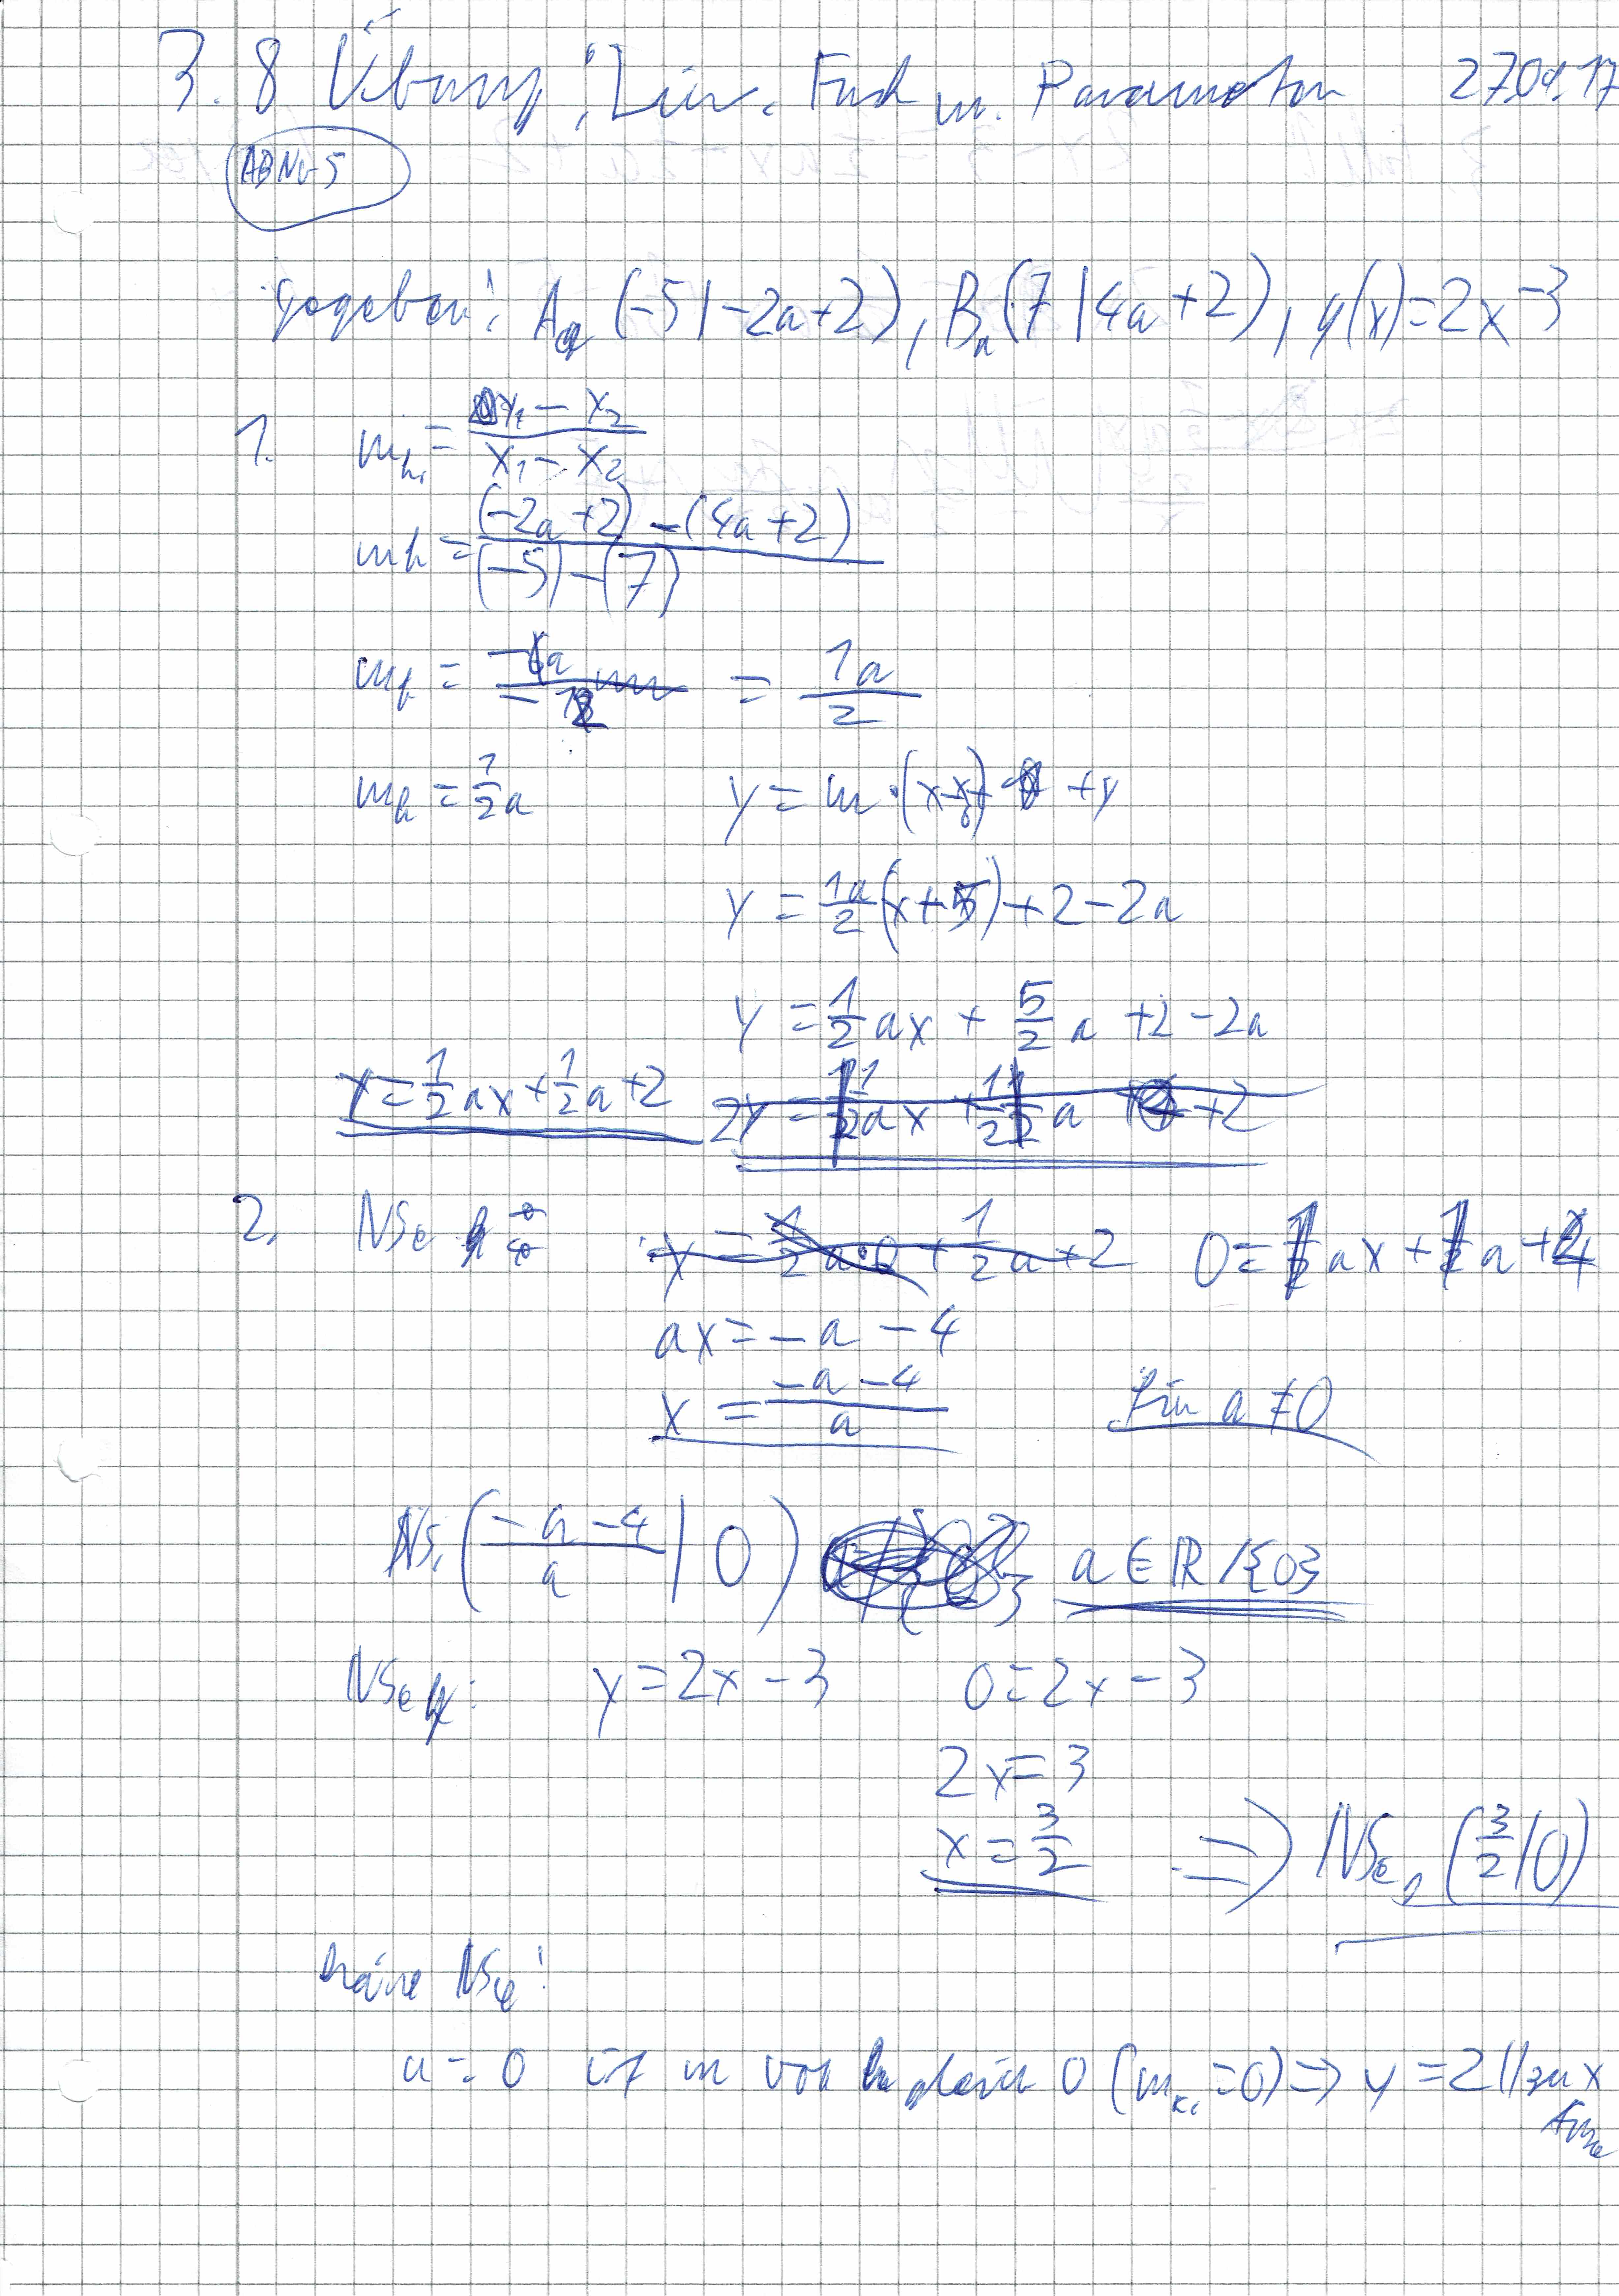 3.8 Übung: Lin. Funk m. Parametern 27.04.17
ABNr 5
gegeben: Aa (-5 | -2a+2), Ba (7 | 4a+2), g(x)=2x-3
1. mh = y1 - y2 / x1 - x2
mh = (-2a+2) - (4a+2) / (-5) - (7)
mh = -6a / -12 = 1a / 2
mh = 1/2 a y = m · (x-x1) + y
y = 1a/2 (x+5) + 2 - 2a
y = 1/2 ax + 5/2 a + 2 - 2a
y = 1/2 ax + 1/2 a + 2
2. NSe h y = 1/2 a·0 + 1/2 a + 2 0 = ax + a + 4
ax = -a - 4
x = -a-4 / a für a ≠ 0
NS (-a-4 / a | 0) a ∈ ℝ /{0}
NSe g: y = 2x - 3 0 = 2x - 3
2x = 3
x = 3/2 ⇒ NSe (3/2 | 0)
keine NSe:
a = 0 ist m von h gleich 0 (m = 0) ⇒ y = 2 || zur x